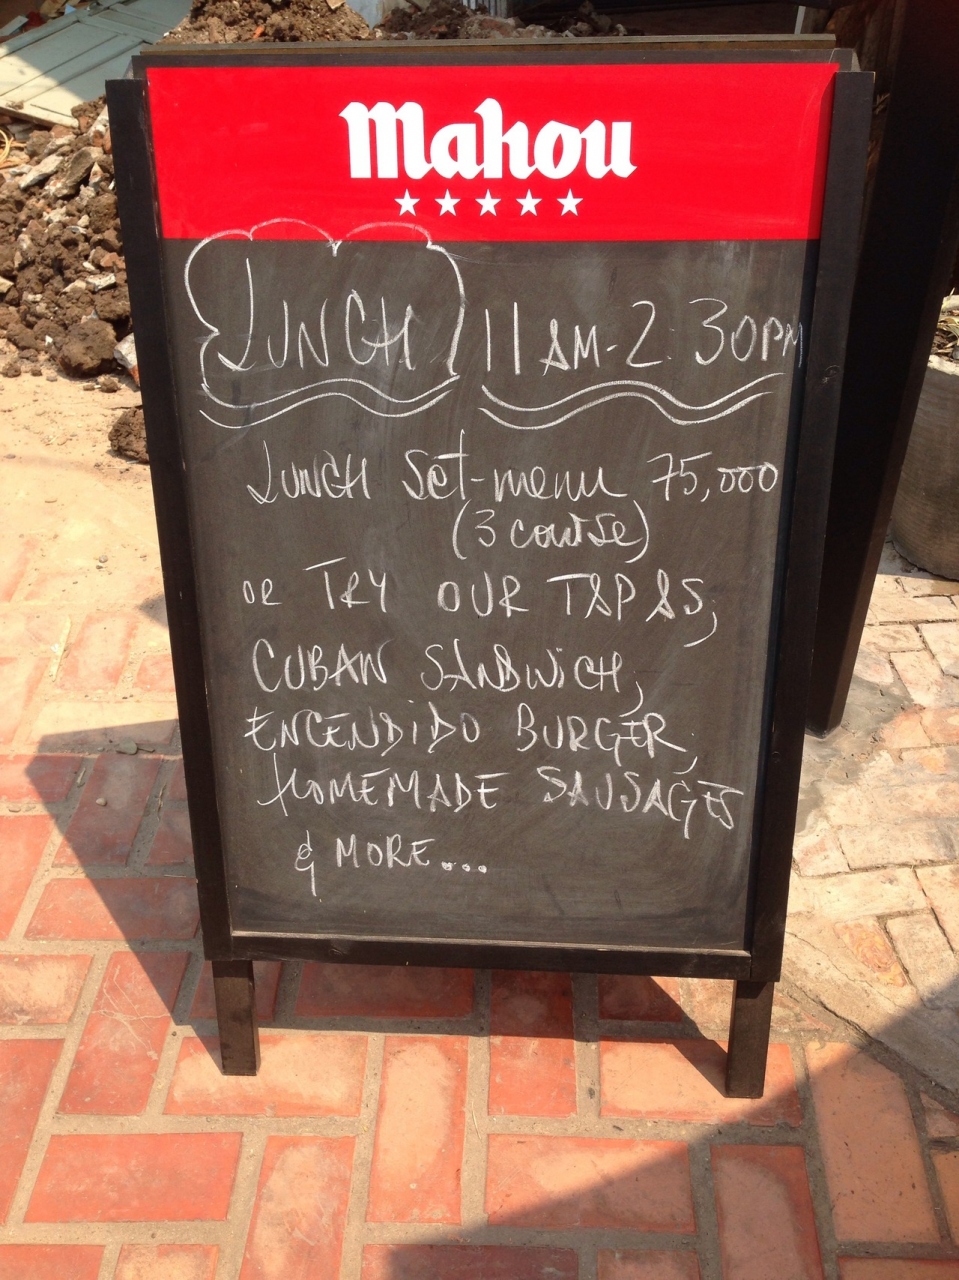 Mahou
LUNCH 11AM-2:30PM
LUNCH Set-menu 75,000
(3 course)
OR TRY OUR TAPAS,
CUBAN SANDWICH,
ENCENDIDO BURGER,
HOMEMADE SAUSAGES
& MORE....